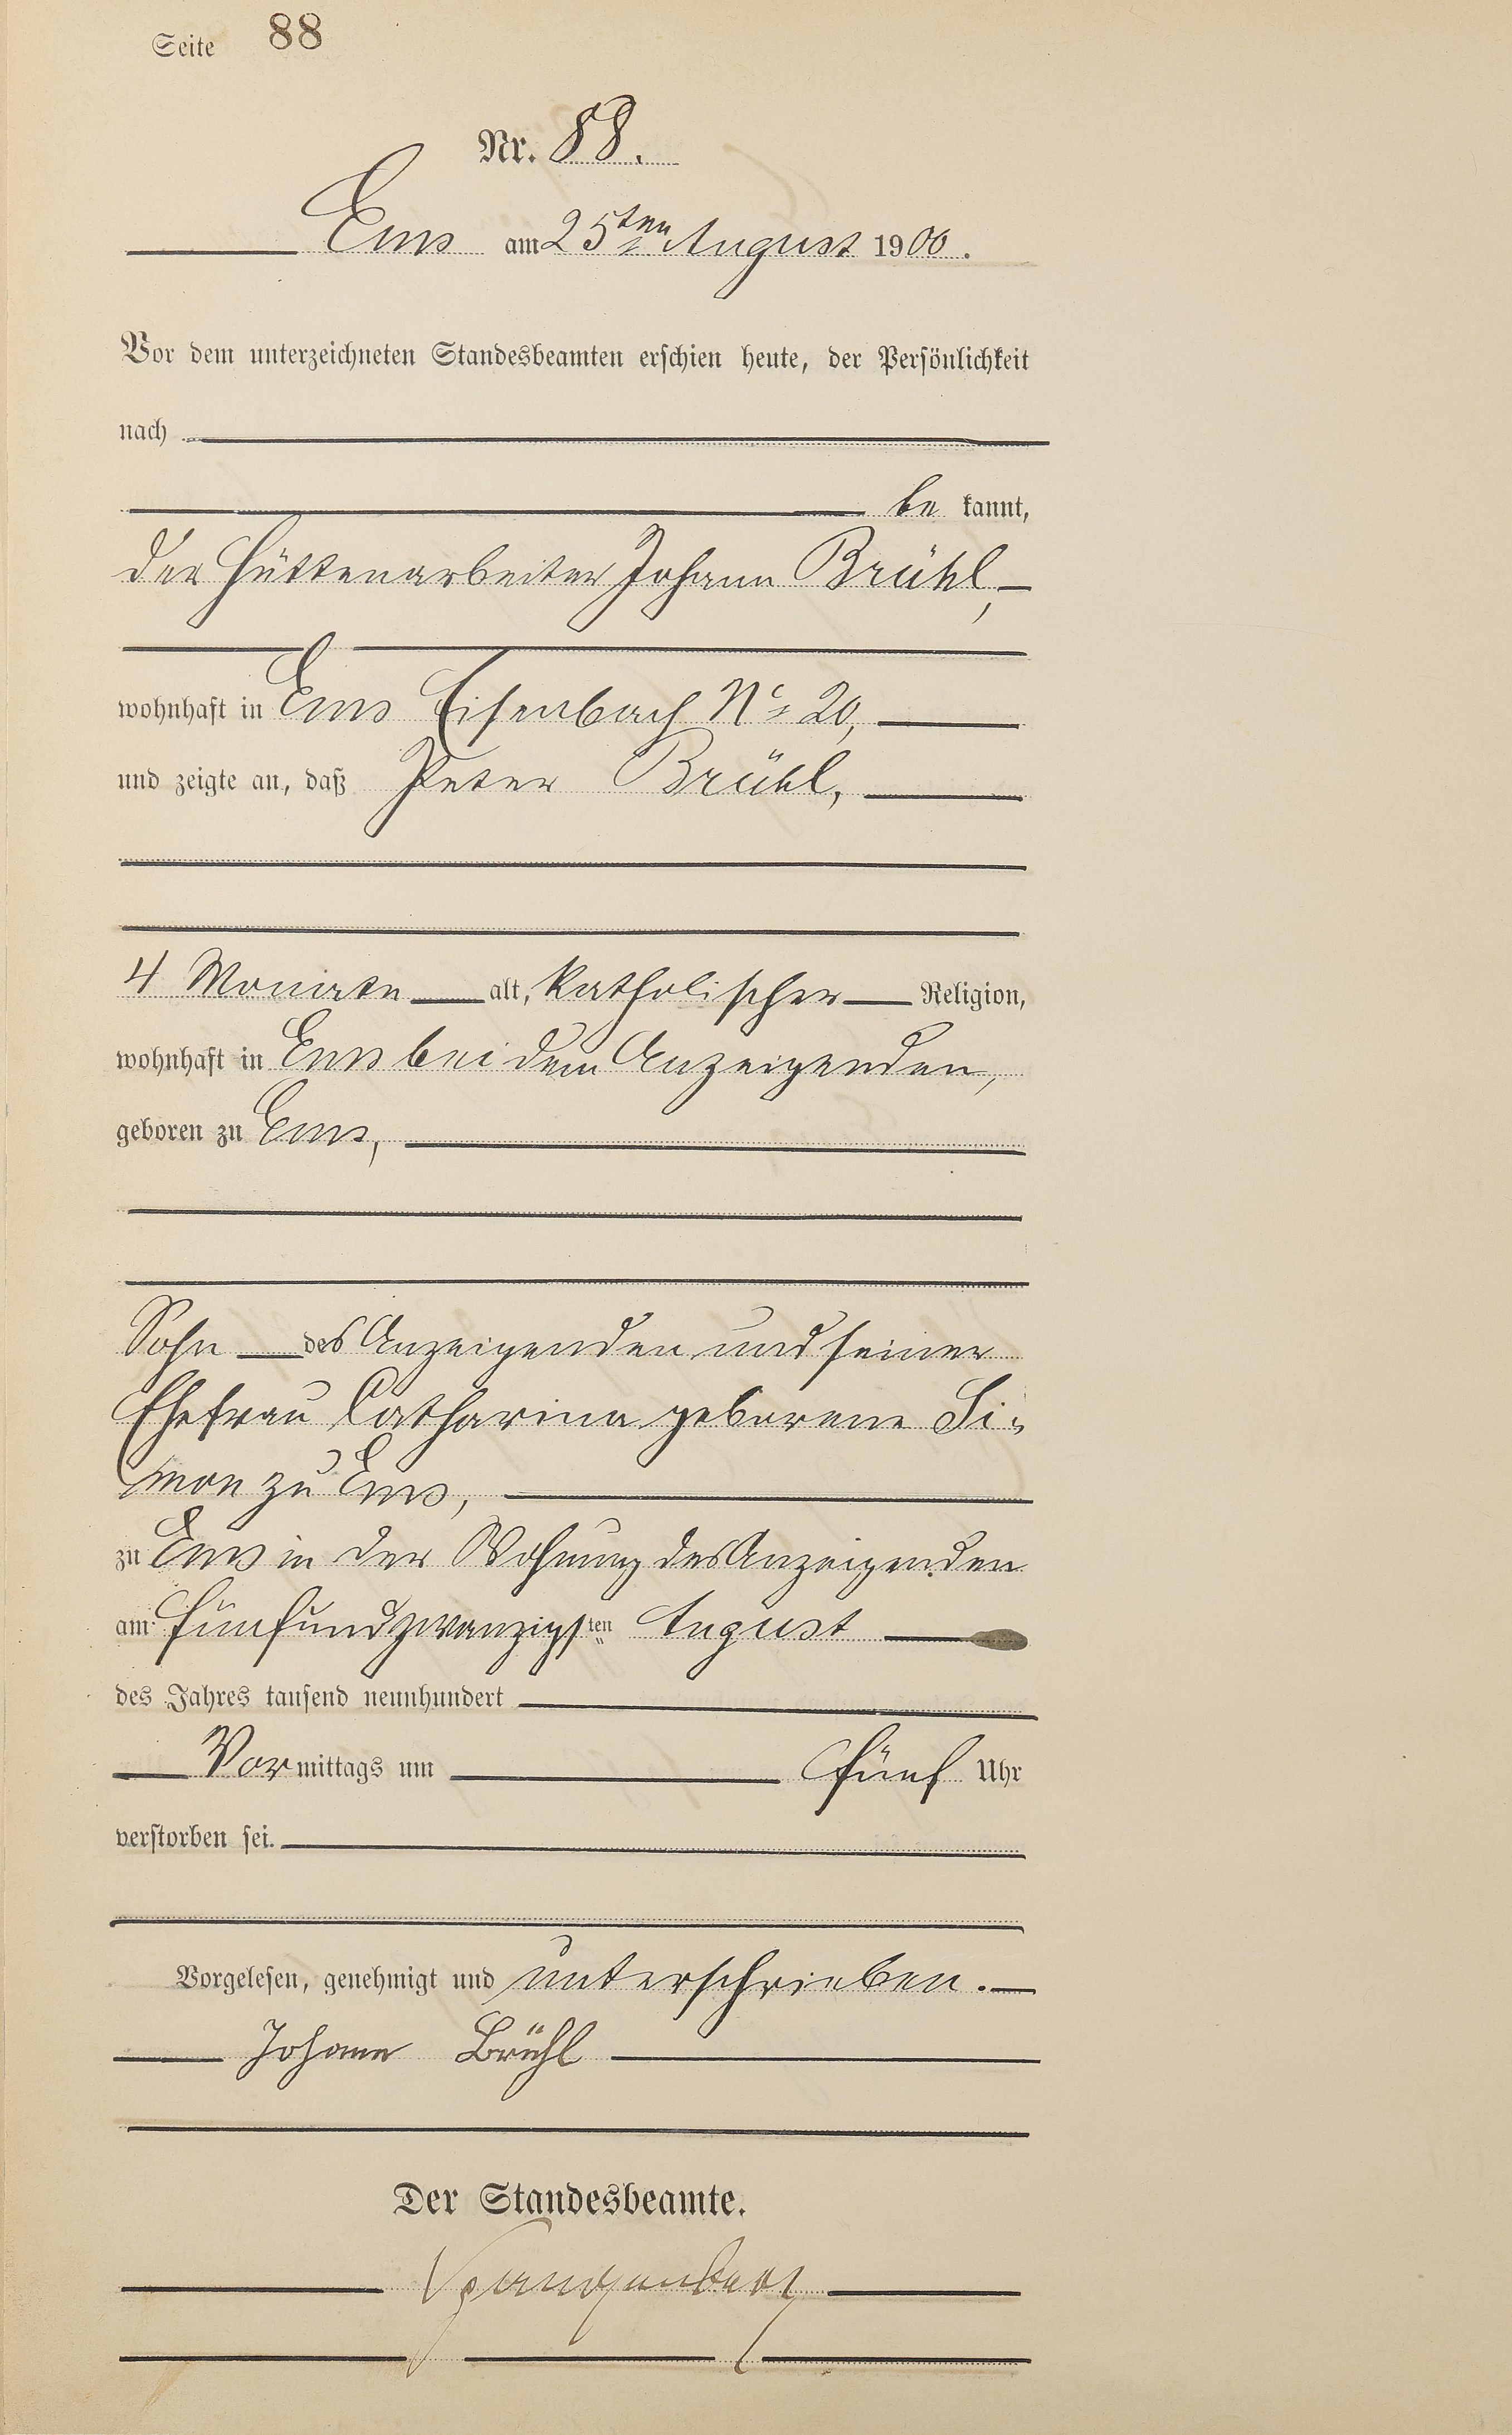 Seite 88
Nr. 88.
Ems am 25ten August 1900.
Vor dem unterzeichneten Standesbeamten erschien heute, der Persönlichkeit
nach
be kannt,
der Hüttenarbeiter Johann Brühl,
wohnhaft in Ems Eisenbach No 20,
und zeigte an, daß Peter Brühl,
4 Monate alt, katholischer Religion,
wohnhaft in Ems bei dem Anzeigenden,
geboren zu Ems,
Sohn des Anzeigenden und seiner
Ehefrau Catharina geborene Si-
mon zu Ems,
zu Ems in der Wohnung des Anzeigenden
am fünfundzwanzigsten August
des Jahres tausend neunhundert
Vormittags um fünf Uhr
verstorben sei.
Vorgelesen, genehmigt und unterschrieben.
Johann Brühl
Der Standesbeamte.